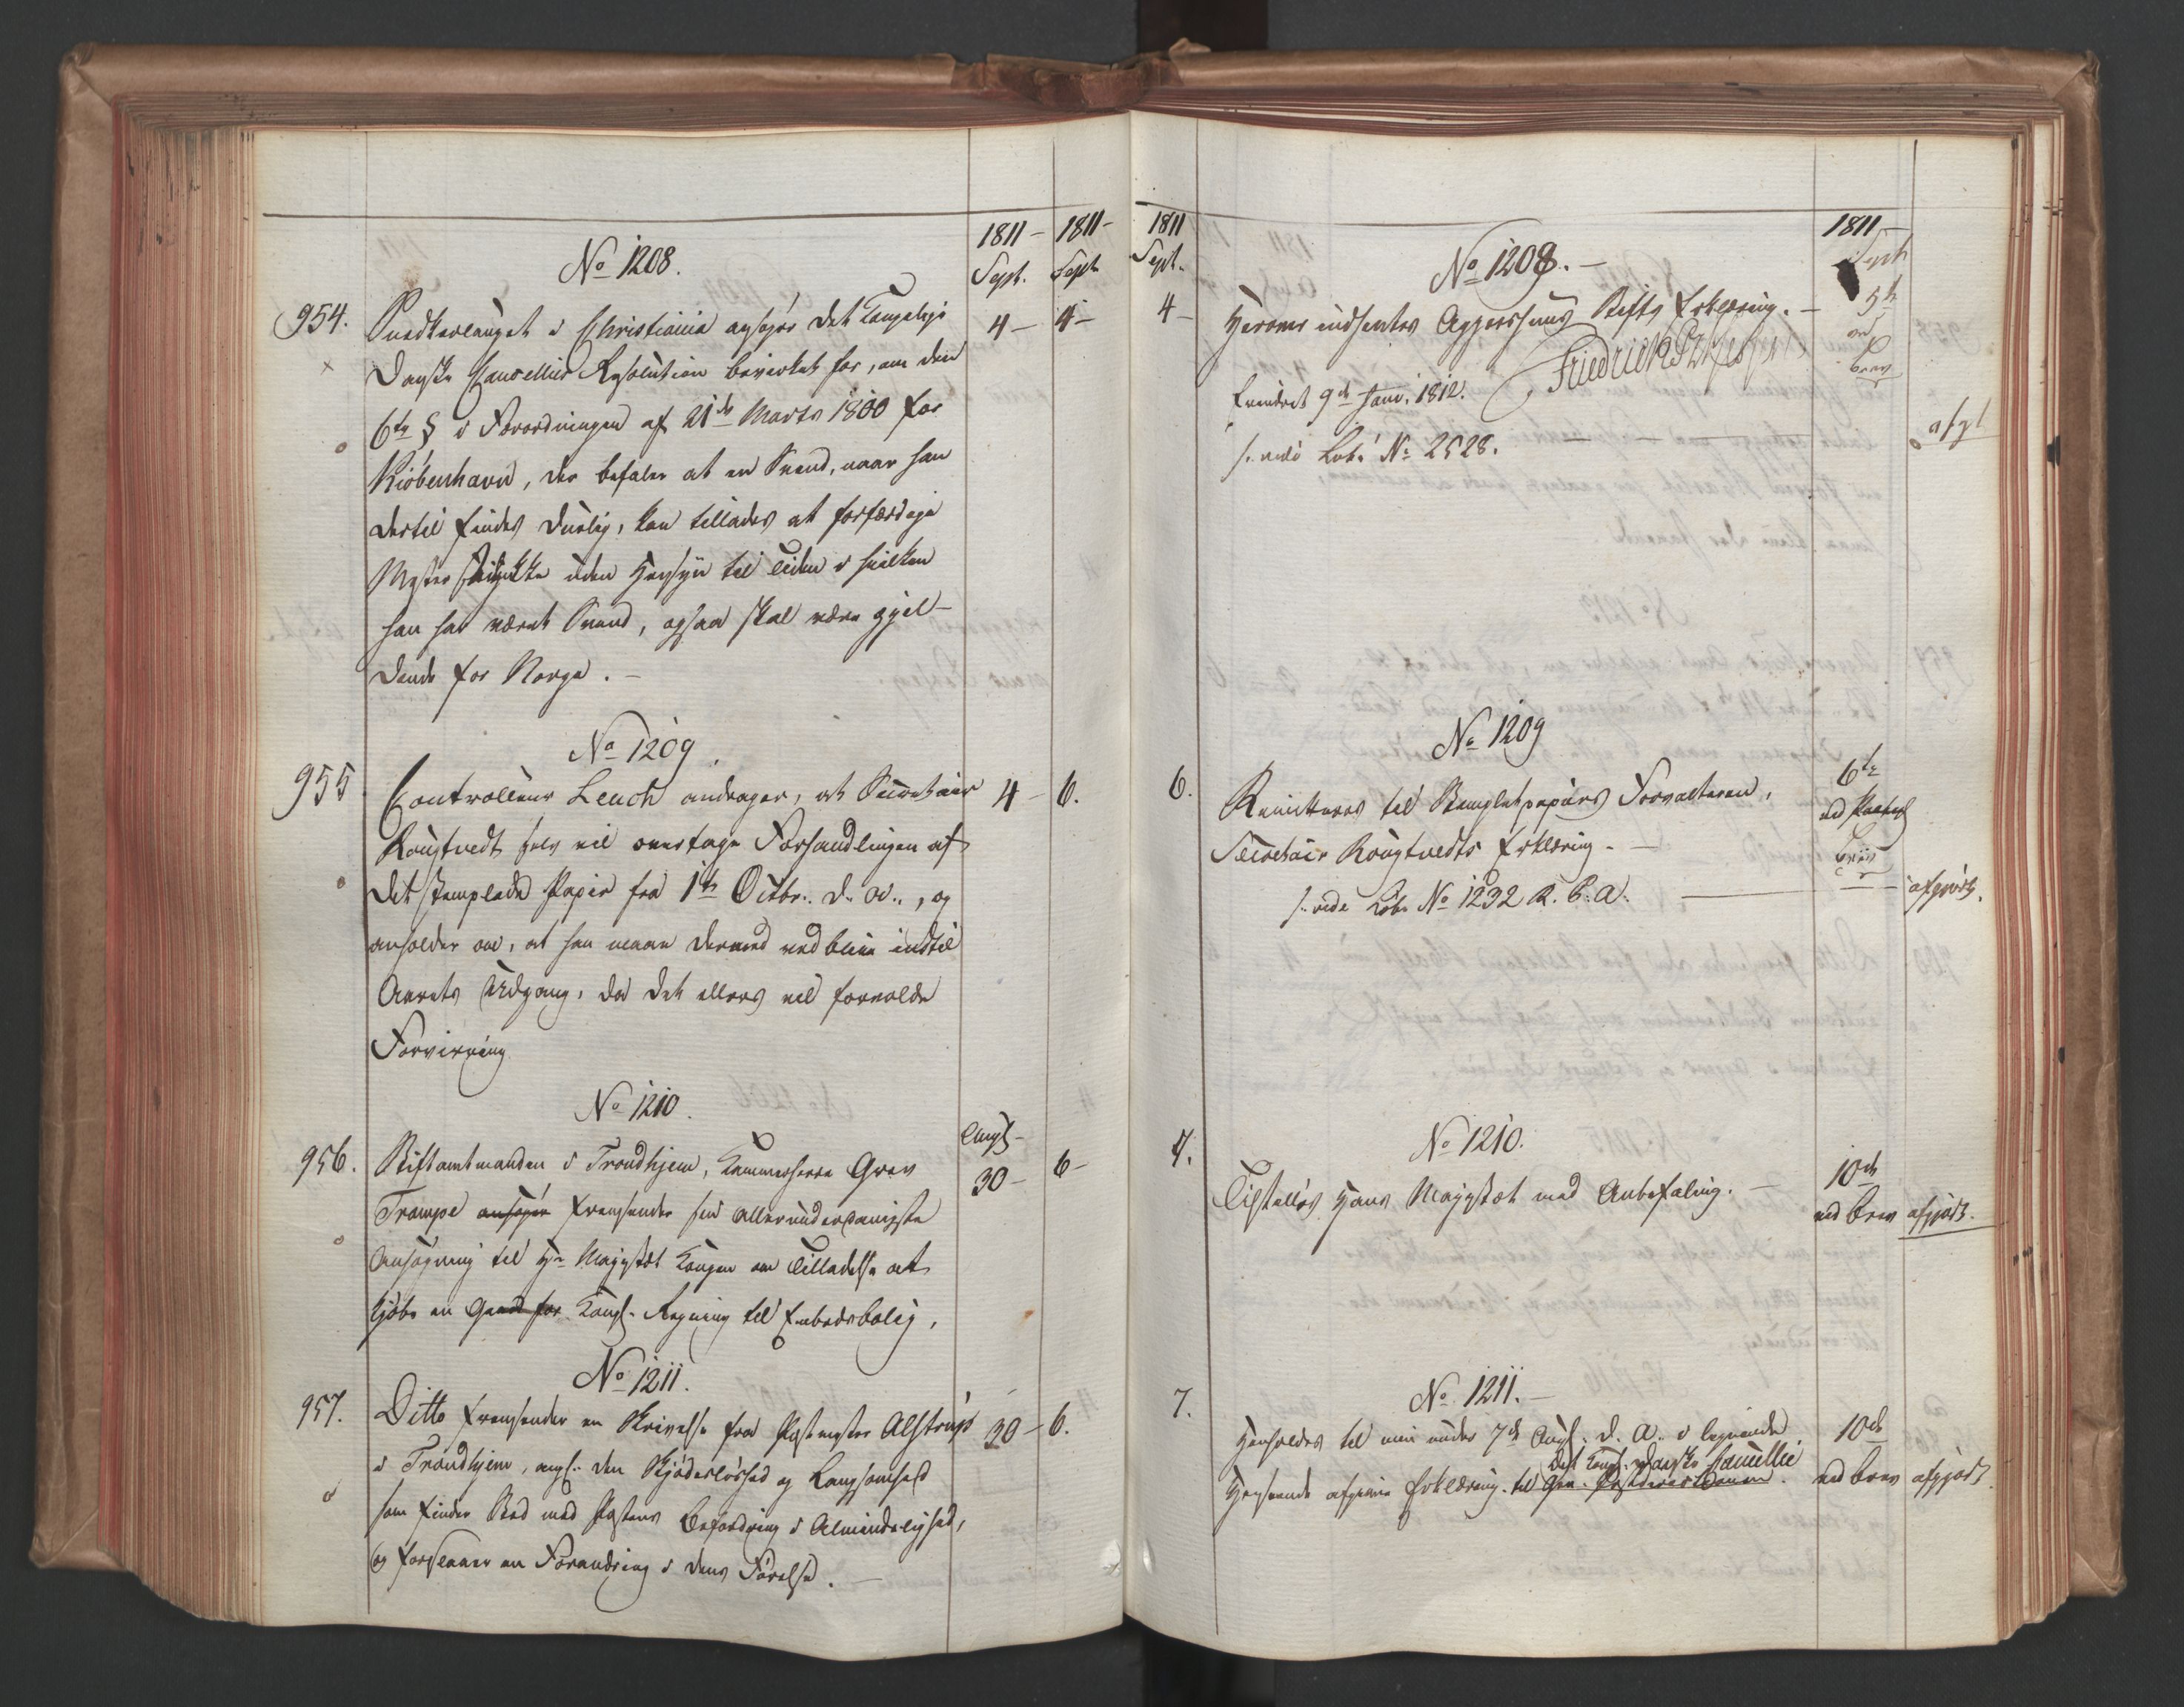 1811 –
Sept.
1811 –
Sept.
No 1208.
954.
Snedkerlauget i Christiania ansøger det Kongelige
4 –
4 –
Danske Cancellies Resolution bevirket for, om den
6te § i Forordningen af 21de Marts 1800 for
Kiöbenhavn, der befaler at en Svend, naar han
dertil findes duelig, kan tillades at forfærdige
Mesterstykke uden Hensyn til Tiden i hvilken
han har været Svend, ogsaa skal være gjel-
dende for Norge. –
No 1209.
955
Controlleur Leuch andrager, at Secretair
4 –
6.
Rougtvedt selv vil overtage Forhandlingen af
det stemplede Papir fra 1te Octbr. d. A., og
anholder om, at han maae dermed vedblive indtil
Aarets Udgang, da det ellers vil forvolde
Forvirring
No 1210.
Augt –
956.
Stiftamtmanden i Trondhjem, Kammerherre Grev
30 –
6 –
Trampe ansøger fremsender sin allerunderdanigste
Ansøgning til Hs Majestæt Kongen om Tilladelse at
kjöbe en Gaard for Kongl. Regning til Embedsbolig.
No 1211.
957.
Ditto fremsender en Skrivelse fra Postmester Alstrup
30 –
6.
i Trondhjem, angl. den Skjödeslöshed og Langsomhed
som finder Sted med Postens Befordring i Almindelighed,
og foreslaaer en Forandring i dens Förelse. –
1811
Sept.
1811 –
Sept
No 1208. –
4 –
Herover indhentes Aggershuus Stifts Erklæring. –
5te
ved
Brev
Friedrich PzHessen
Erindret 9de Janr. 1812.
s. vide Lob. No 2528.
afgt
No 1209
6.
Remitteres til Stempletpapiirs Forvalteren,
6te
ved
Secretair Rougtvedts Erklæring. –
s. vide Lob. No 1232 R. B. A.
afgiort.
No 1210.
7.
Tilstilles Hans Majestæt med Anbefaling. –
10de
ved Brev
afgjort.
No 1211. –
7.
Henholdes til min under 7de Augt. d. A. i lignende
10de
det Kongl. Danske Cancellie
Henseende afgivne Erklæring til Gen. Postdirectionen.
ved Brev
afgjort